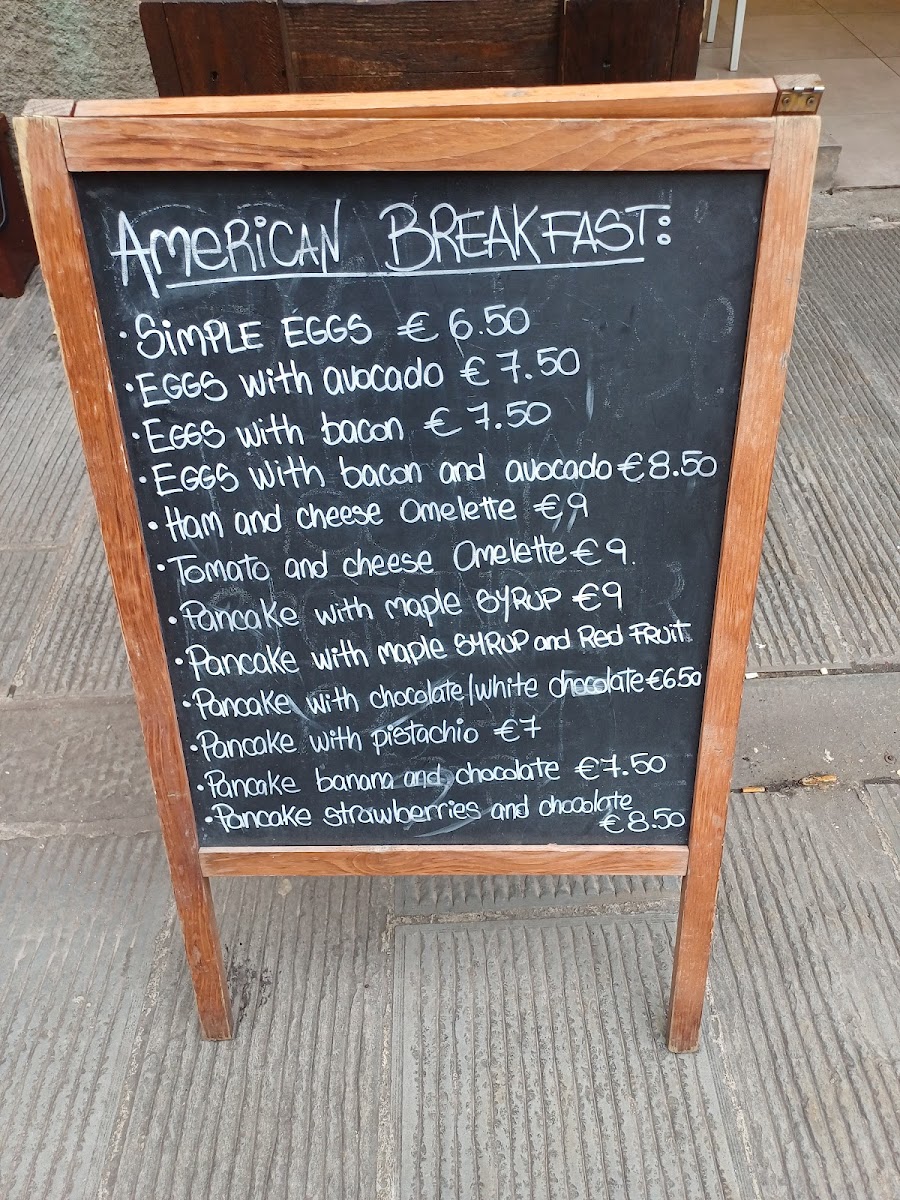 AmeRiCAN BREAKFAST:
• SiMPLE EGGS € 6.50
• EGGS with avocado € 7.50
• EGGS with bacon € 7.50
• EGGS with bacon and avocado € 8.50
• Ham and cheese Omelette € 9
• Tomato and cheese Omelette € 9.
• Pancake with maple SYRUP € 9
• Pancake with maple SYRUP and Red FRuiT
• Pancake with chocolate/white chocolate € 6.50
• Pancake with pistachio € 7
• Pancake banana and chocolate € 7.50
• Pancake strawberries and chocolate
€ 8.50